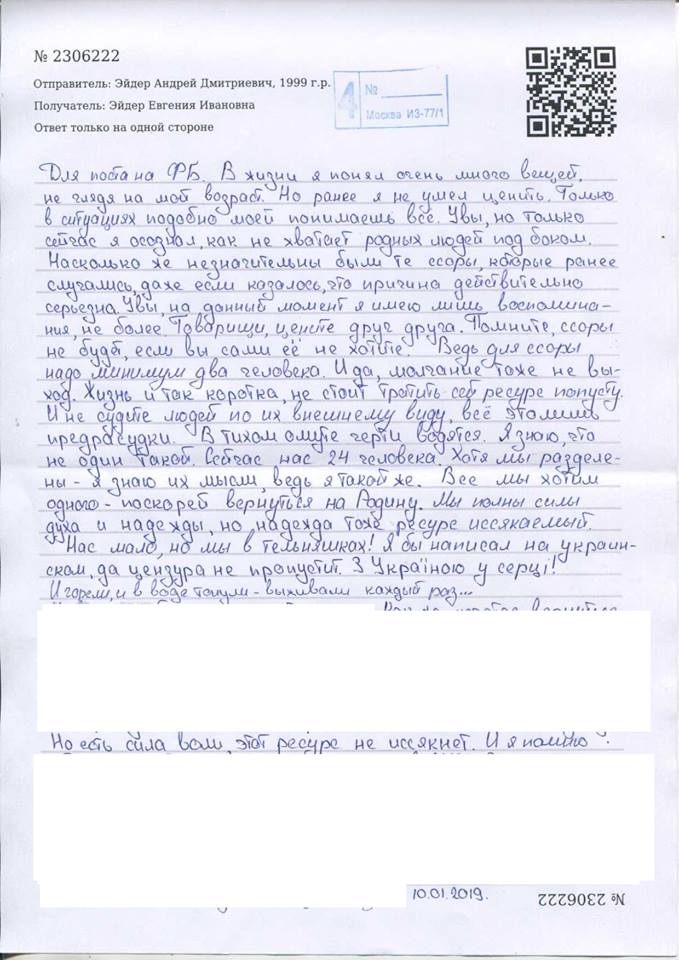 № 2306222
Отправитель: Эйдер Андрей Дмитриевич, 1999 г.р.
Получатель: Эйдер Евгения Ивановна
Ответ только на одной стороне
4 №
Москва ИЗ-77/1
Для поста на ФБ. В жизни я понял очень много вещей,
не глядя на мой возраст. Но ранее я не умел ценить. Только
в ситуациях подобно моей понимаешь всё. Увы, но только
сейчас я осознал, как не хватает родных людей под боком.
Насколько же незначительны были те ссоры, которые ранее
случались, даже если казалось, что причина действительно
серьезна. Увы, на данный момент я имею лишь воспомина-
ния, не более. Товарищи, цените друг друга. Помните, ссоры
не будет, если вы сами её не хотите. Ведь для ссоры
надо минимум два человека. И да, молчание тоже не вы-
ход. Жизнь и так коротка, не стоит тратить сей ресурс попусту.
И не судите людей по их внешнему виду, всё это лишь
предрассудки. В тихом омуте черти водятся. Я знаю, что
не один такой. Сейчас нас 24 человека. Хотя мы разделе-
ны - я знаю их мысли, ведь я такой же. Все мы хотим
одного - поскорей вернуться на Родину. Мы полны силы
духа и надежды, но, надежда тоже ресурс иссякаемый.
Нас мало, но мы в тельняшках! Я бы написал на украин-
ском, да цензура не пропустит. З Україною у серці!
И горели, и в воде тонули - выживали каждый раз...
Но есть сила воли, этот ресурс не иссякнет. И я помню
10.01.2019.
№ 2306222